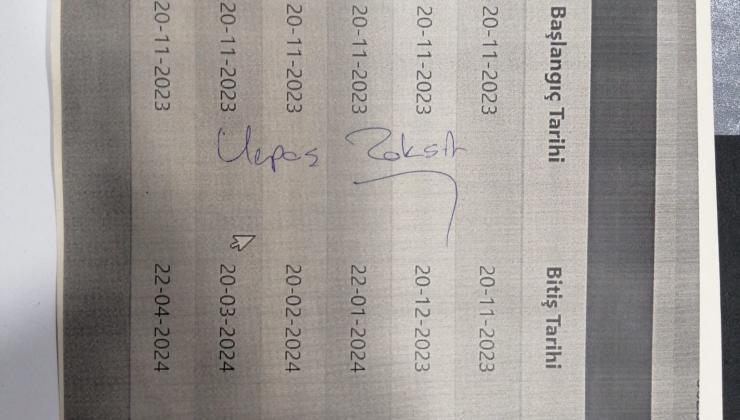 Başlangıç Tarihi Bitiş Tarihi
20-11-2023 20-11-2023
20-11-2023 20-12-2023
20-11-2023 22-01-2024
20-11-2023 20-02-2024
20-11-2023 20-03-2024
20-11-2023 22-04-2024